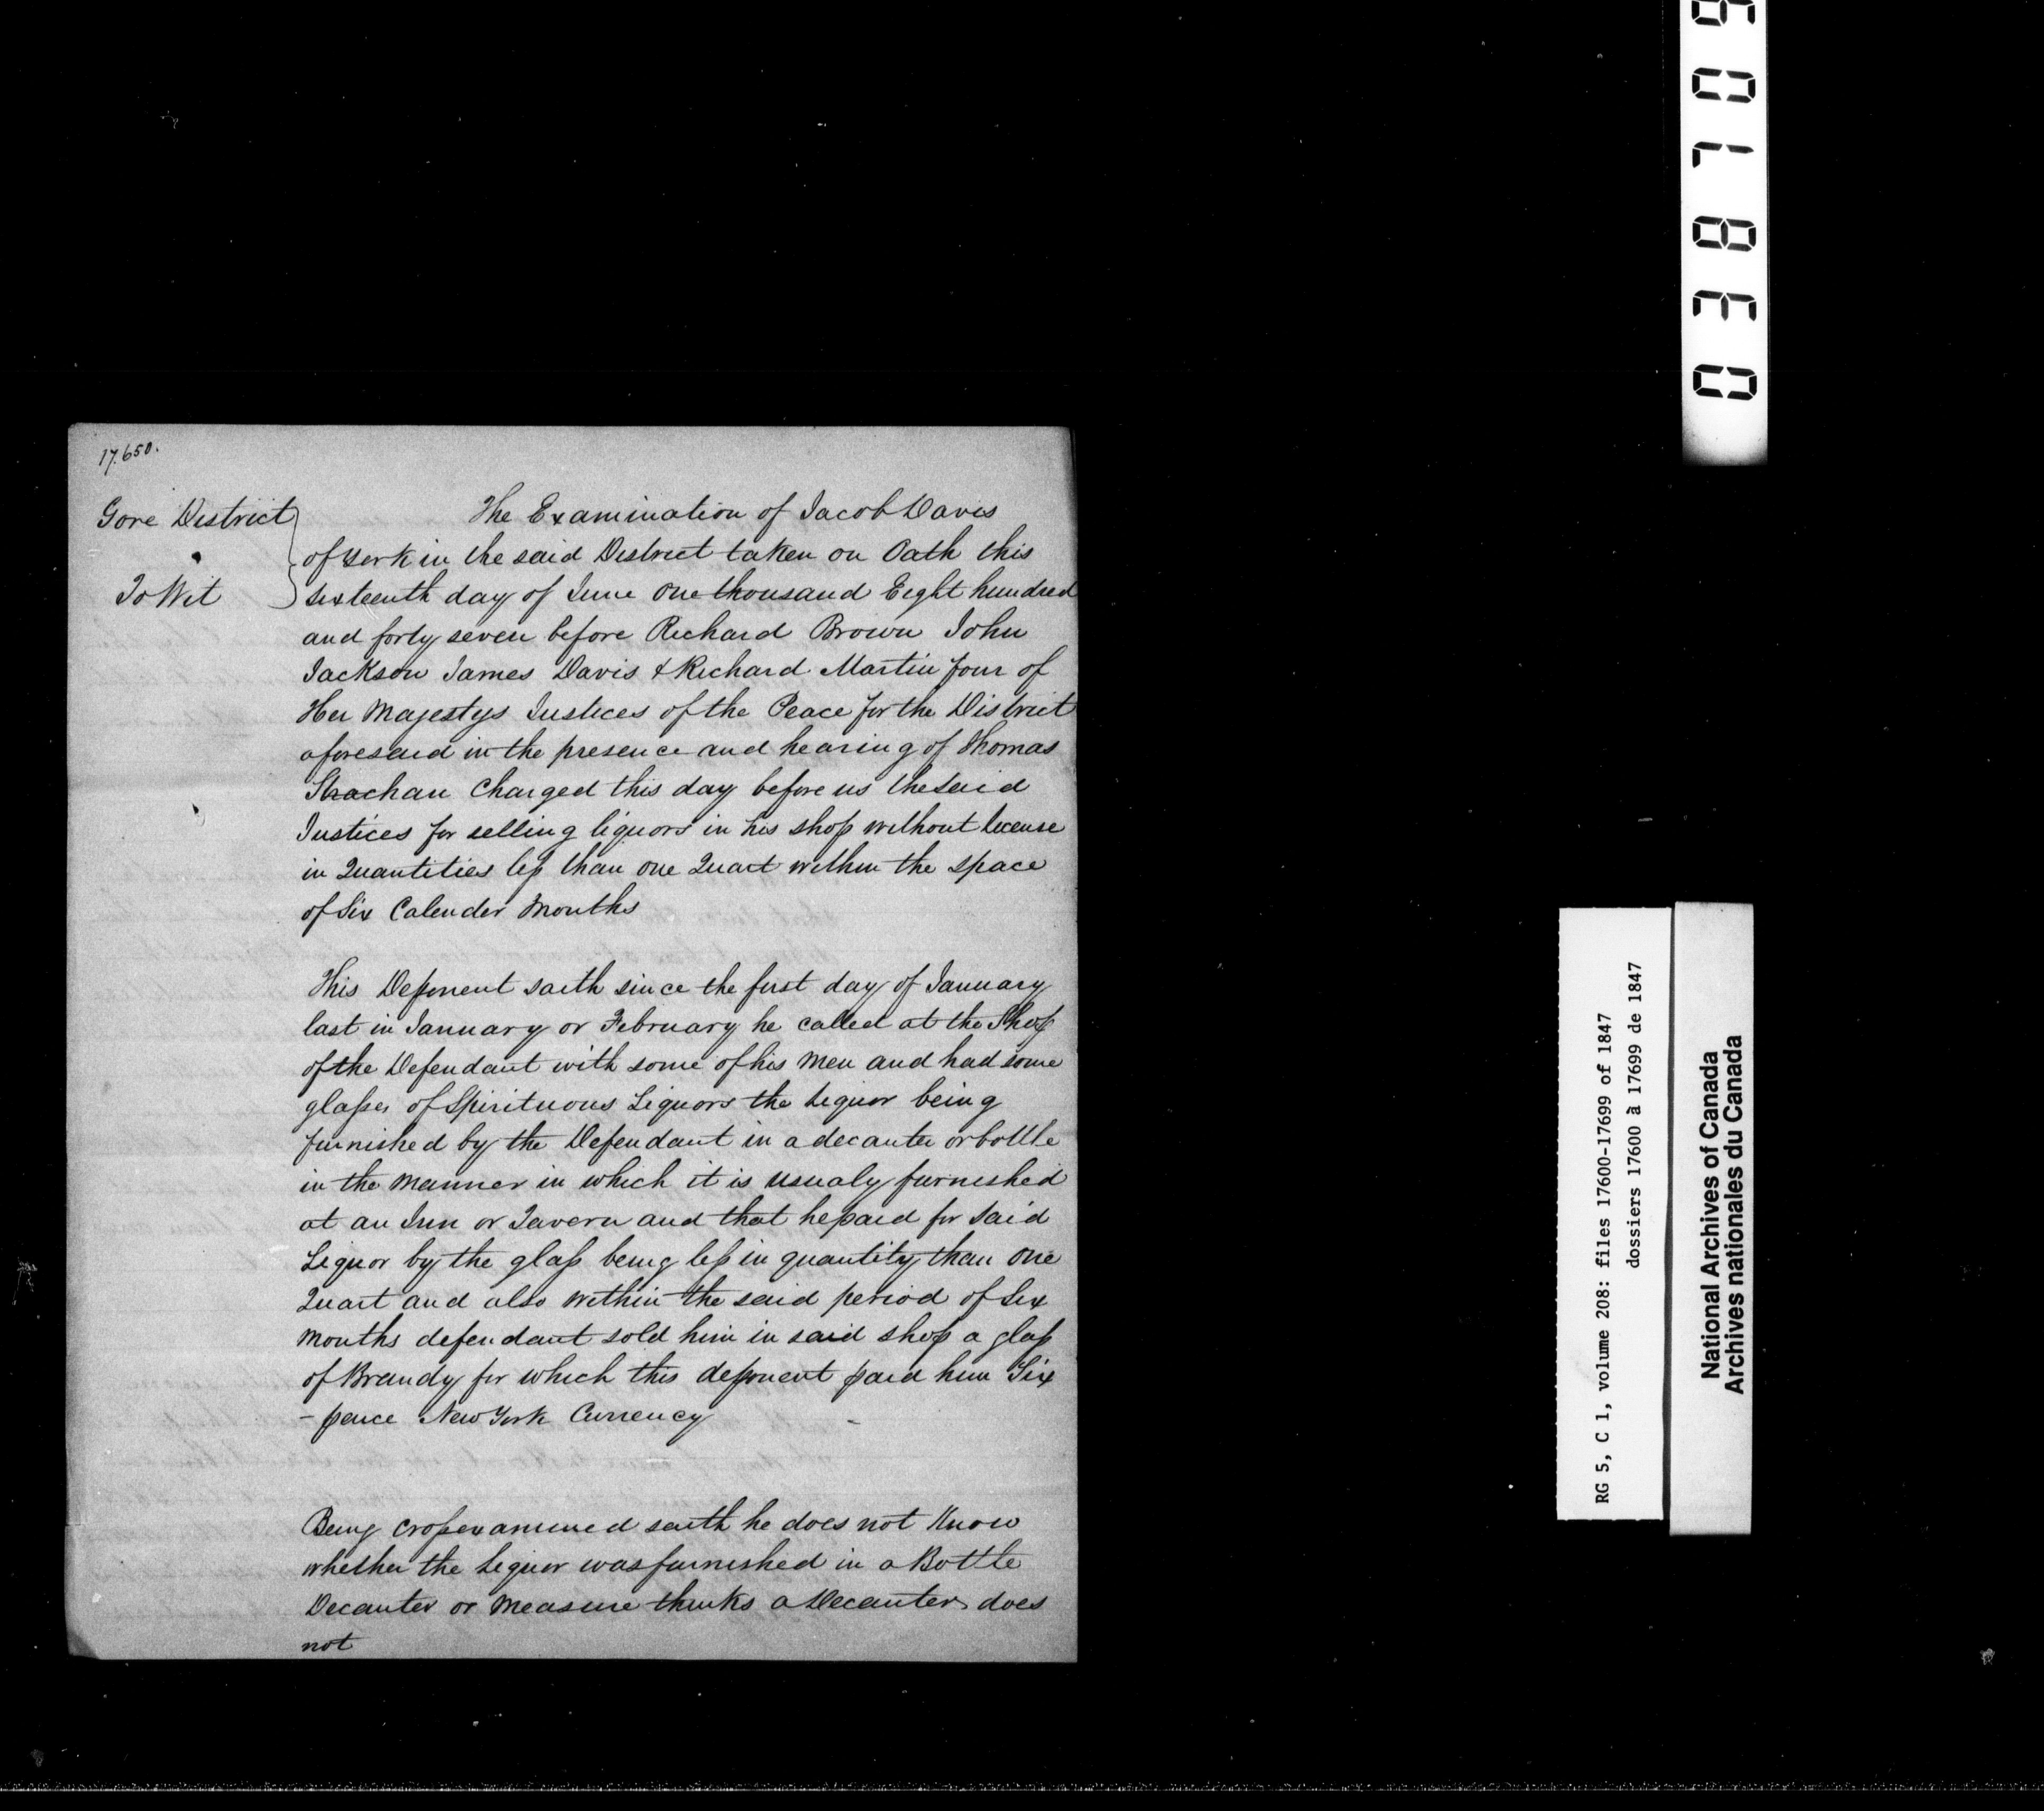 17.650.
Gore District
To Wit
The Examination of Jacob Davis
of York in the said District taken on Oath this
sixteenth day of June one thousand Eight hundred
and forty seven before Richard Brown John
Jackson James Davis & Richard Martin four of
Her Majestys Justices of the Peace for the District
aforesaid in the presence and hearing of Thomas
Strachan Charged this day before us the said
Justices for selling liquors in his shop without license
in Quantities less than one Quart within the space
of Six Calender Months
This Deponent saith since the first day of January
last in January or February he called at the Shop
of the Defendant with some of his men and had some
glasses of Spirituous Liquors the liquor being
furnished by the Defendant in a decanter or bottle
in the manner in which it is usualy furnished
at an Inn or Tavern and that he paid for said
Liquor by the glass being less in quantity than one
Quart and also within the said period of Six
Months defendant sold him in said shop a glass
of Brandy for which this deponent paid him Six
- pence New York Currency -
Being crossexamined saith he does not Know
whether the liquor was furnished in a Bottle
Decanter or Measure thinks a Decanter does
not
0 3 8 7 0 9
RG 5, C 1, volume 208: files 17600-17699 of 1847
dossiers 17600 à 17699 de 1847
National Archives of Canada
Archives nationales du Canada